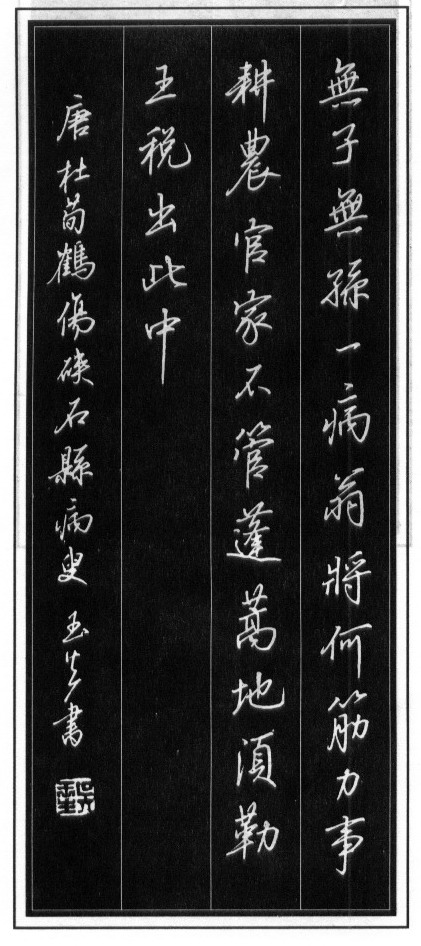 無子無孫一病翁將何筋力事
耕農官家不管蓬蒿地須勒
王税出此中
唐杜荀鶴傷硤石縣病叟 玉生書